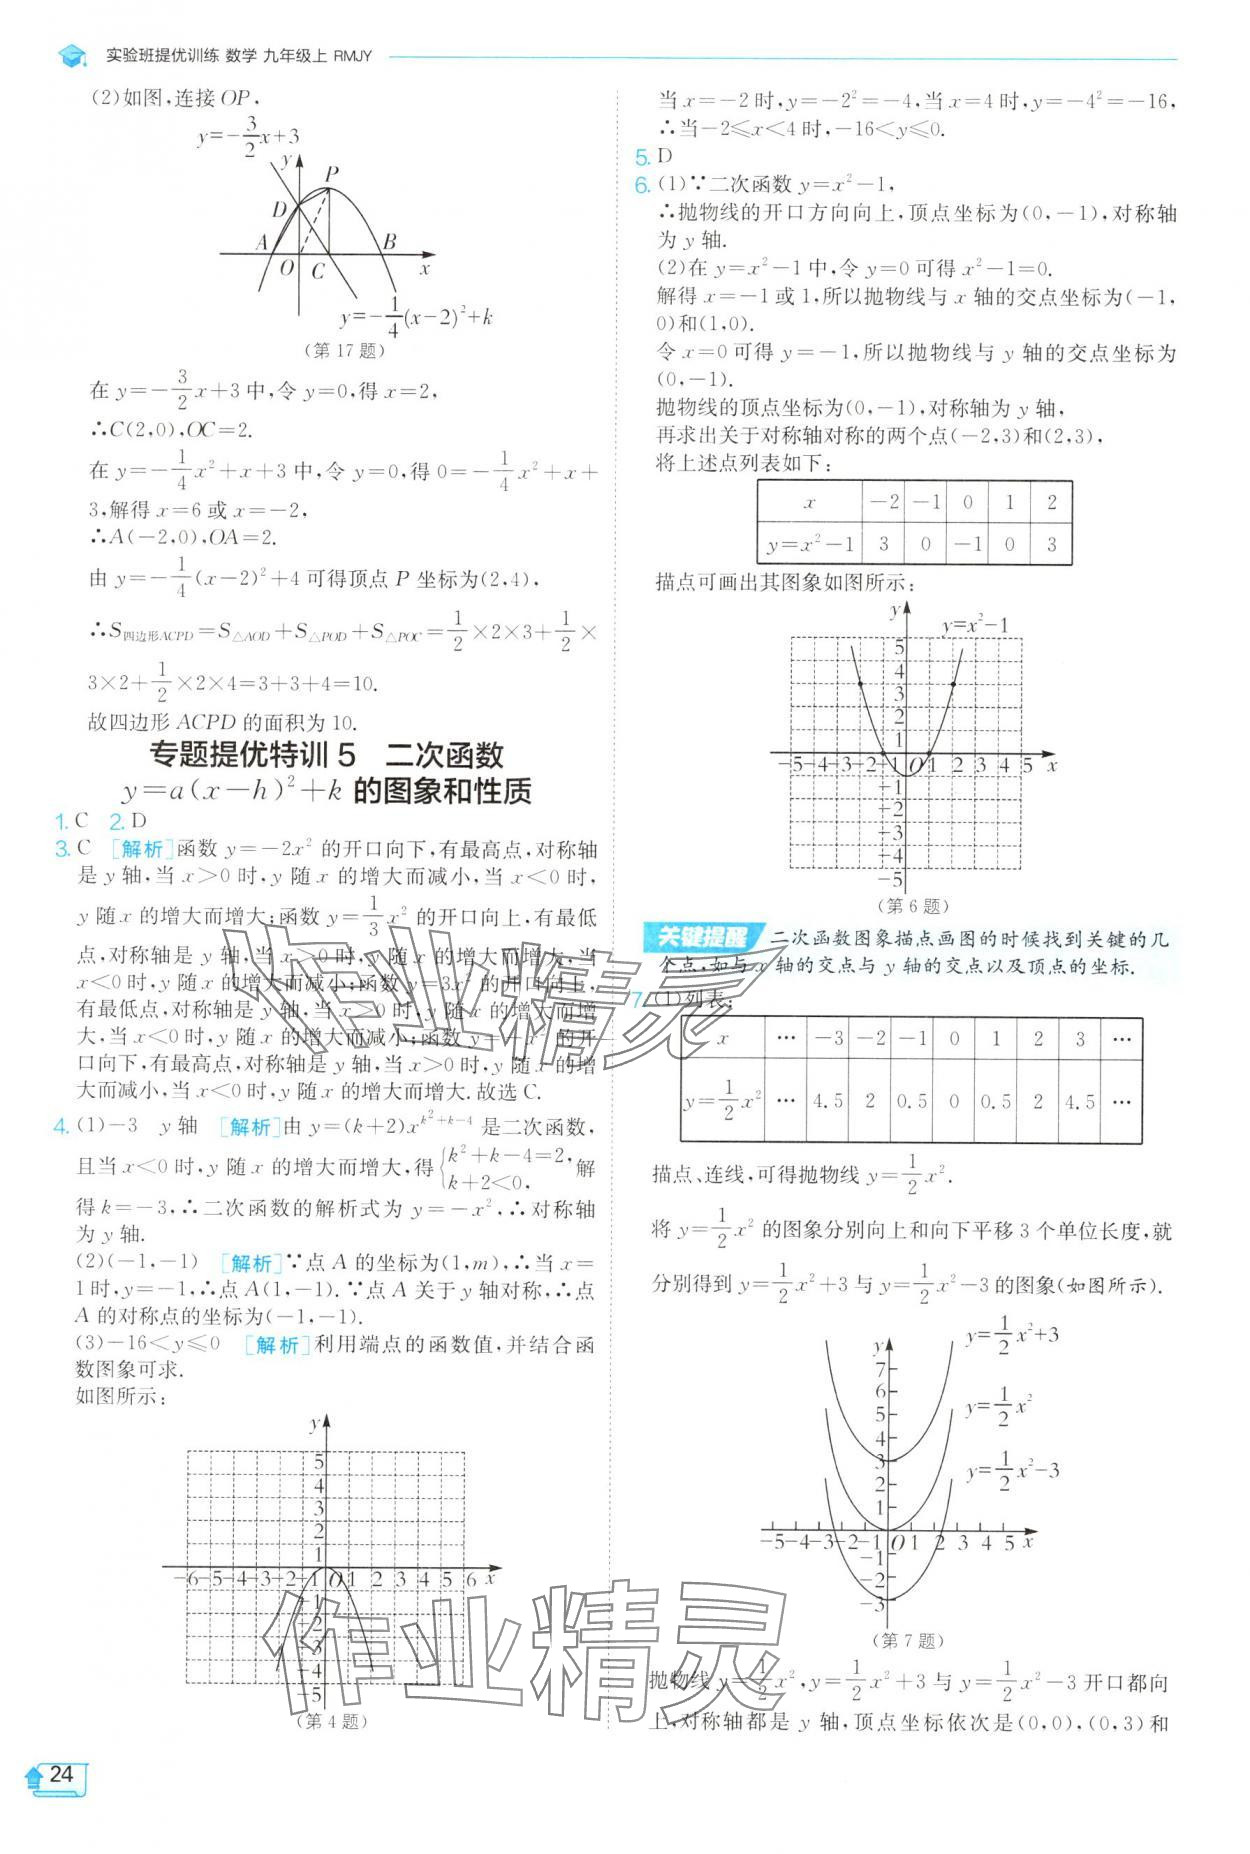 实验班提优训练 数学 九年级上 RMJY
(2)如图,连接OP,
y=-3/2x+3
y
P
D
A
B
O
C
x
y=-1/4(x-2)²+k
(第17题)
在y=-3/2x+3中,令y=0,得x=2,
∴C(2,0),OC=2.
在y=-1/4x²+x+3中,令y=0,得0=-1/4x²+x+
3,解得x=6或x=-2,
∴A(-2,0),OA=2.
由y=-1/4(x-2)²+4可得顶点P坐标为(2,4),
∴S四边形ACPD=S△AOD+S△POD+S△POC=1/2×2×3+1/2×
3×2+1/2×2×4=3+3+4=10.
故四边形ACPD的面积为10.
专题提优特训5 二次函数
y=a(x-h)²+k的图象和性质
1. C 2. D
3. C [解析]函数y=-2x²的开口向下,有最高点,对称轴
是y轴,当x>0时,y随x的增大而减小,当x<0时,
y随x的增大而增大;函数y=1/3x²的开口向上,有最低
点,对称轴是y轴,当x>0时,y随x的增大而增大,当
x<0时,y随x的增大而减小;函数y=3x²的开口向上,
有最低点,对称轴是y轴,当x>0时,y随x的增大而增
大,当x<0时,y随x的增大而减小;函数y=-x²的开
口向下,有最高点,对称轴是y轴,当x>0时,y随x的增
大而减小,当x<0时,y随x的增大而增大.故选C.
4. (1)-3 y轴 [解析]由y=(k+2)x^(k²+k-4)是二次函数,
且当x<0时,y随x的增大而增大,得{k²+k-4=2, k+2<0, 解
得k=-3,∴二次函数的解析式为y=-x²,∴对称轴
为y轴.
(2)(-1,-1) [解析]∵点A的坐标为(1,m),∴当x=
1时,y=-1,∴点A(1,-1).∵点A关于y轴对称,∴点
A的对称点的坐标为(-1,-1).
(3)-16<y≤0 [解析]利用端点的函数值,并结合函
数图象可求.
如图所示:
y
5
4
3
2
1
-6-5-4-3-2-1 O 1 2 3 4 5 6 x
-1
-2
-3
-4
-5
(第4题)
24
当x=-2时,y=-2²=-4,当x=4时,y=-4²=-16,
∴当-2≤x<4时,-16<y≤0.
5. D
6. (1)∵二次函数y=x²-1,
∴抛物线的开口方向向上,顶点坐标为(0,-1),对称轴
为y轴.
(2)在y=x²-1中,令y=0可得x²-1=0.
解得x=-1或1,所以抛物线与x轴的交点坐标为(-1,
0)和(1,0).
令x=0可得y=-1,所以抛物线与y轴的交点坐标为
(0,-1).
抛物线的顶点坐标为(0,-1),对称轴为y轴,
再求出关于对称轴对称的两个点(-2,3)和(2,3),
将上述点列表如下:
x -2 -1 0 1 2
y=x²-1 3 0 -1 0 3
描点可画出其图象如图所示:
y
y=x²-1
5
4
3
2
1
-5-4-3-2-1 O 1 2 3 4 5 x
-1
-2
-3
-4
-5
(第6题)
关键提醒 二次函数图象描点画图的时候找到关键的几
个点,如与x轴的交点与y轴的交点以及顶点的坐标.
7. (1)列表:
x … -3 -2 -1 0 1 2 3 …
y=1/2x² … 4.5 2 0.5 0 0.5 2 4.5 …
描点、连线,可得抛物线y=1/2x².
将y=1/2x²的图象分别向上和向下平移3个单位长度,就
分别得到y=1/2x²+3与y=1/2x²-3的图象(如图所示).
y
y=1/2x²+3
y=1/2x²
y=1/2x²-3
7
6
5
4
3
2
1
-5-4-3-2-1 O 1 2 3 4 5 x
-1
-2
-3
(第7题)
抛物线y=1/2x²,y=1/2x²+3与y=1/2x²-3开口都向
上,对称轴都是y轴,顶点坐标依次是(0,0),(0,3)和
作业精灵
作业精灵